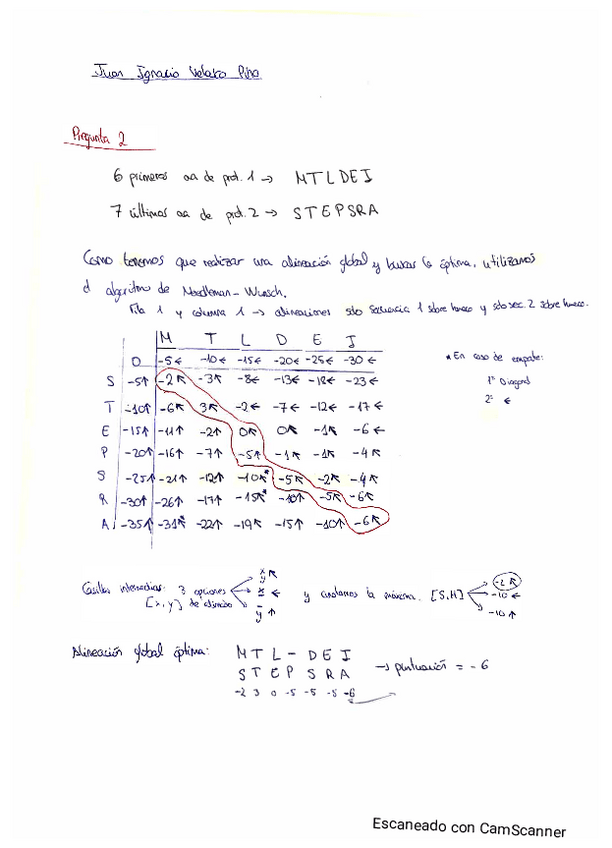 Juan Ignacio Velasco Piña
Pregunta 2
6 primeros aa de prot. 1 → MTLDEI
7 últimos aa de prot. 2 → STEPSRA
Como tenemos que realizar una alineación global y buscar la óptima, utilizamos
el algoritmo de Needleman-Wunsch.
Fila 1 y columna 1 → alineaciones sólo secuencia 1 sobre hueco y sólo sec. 2 sobre hueco.
M T L D E I
0 -5← -10← -15← -20← -25← -30←
S -5↑ -2↖ -3↖ -8← -13← -18← -23←
T -10↑ -6↖ 3↖ -2← -7← -12← -17←
E -15↑ -11↑ -2↑ 0↖ 0↖ -1↖ -6←
P -20↑ -16↑ -7↑ -5↑ -1↖ -1↖ -4↖
S -25↑ -21↑ -12↑ -10↖* -5↖ -2↖ -4↖
R -30↑ -26↑ -17↑ -15↖* -10↑ -5↖ -6↖
A -35↑ -31↖* -22↑ -19↖ -15↑ -10↑ -6↖
* En caso de empate:
1º Diagonal
2º ←
Casillas intermedias: 3 opciones
[x, y] de alinearlo
x y ↖
x - ←
- y ↑
y anotamos la máxima. [S,M]
-2↖
-10←
-10↑
Alineación global óptima:
M T L - D E I
S T E P S R A
-2 3 0 -5 -5 -5 -6
→ puntuación = -6
Escaneado con CamScanner